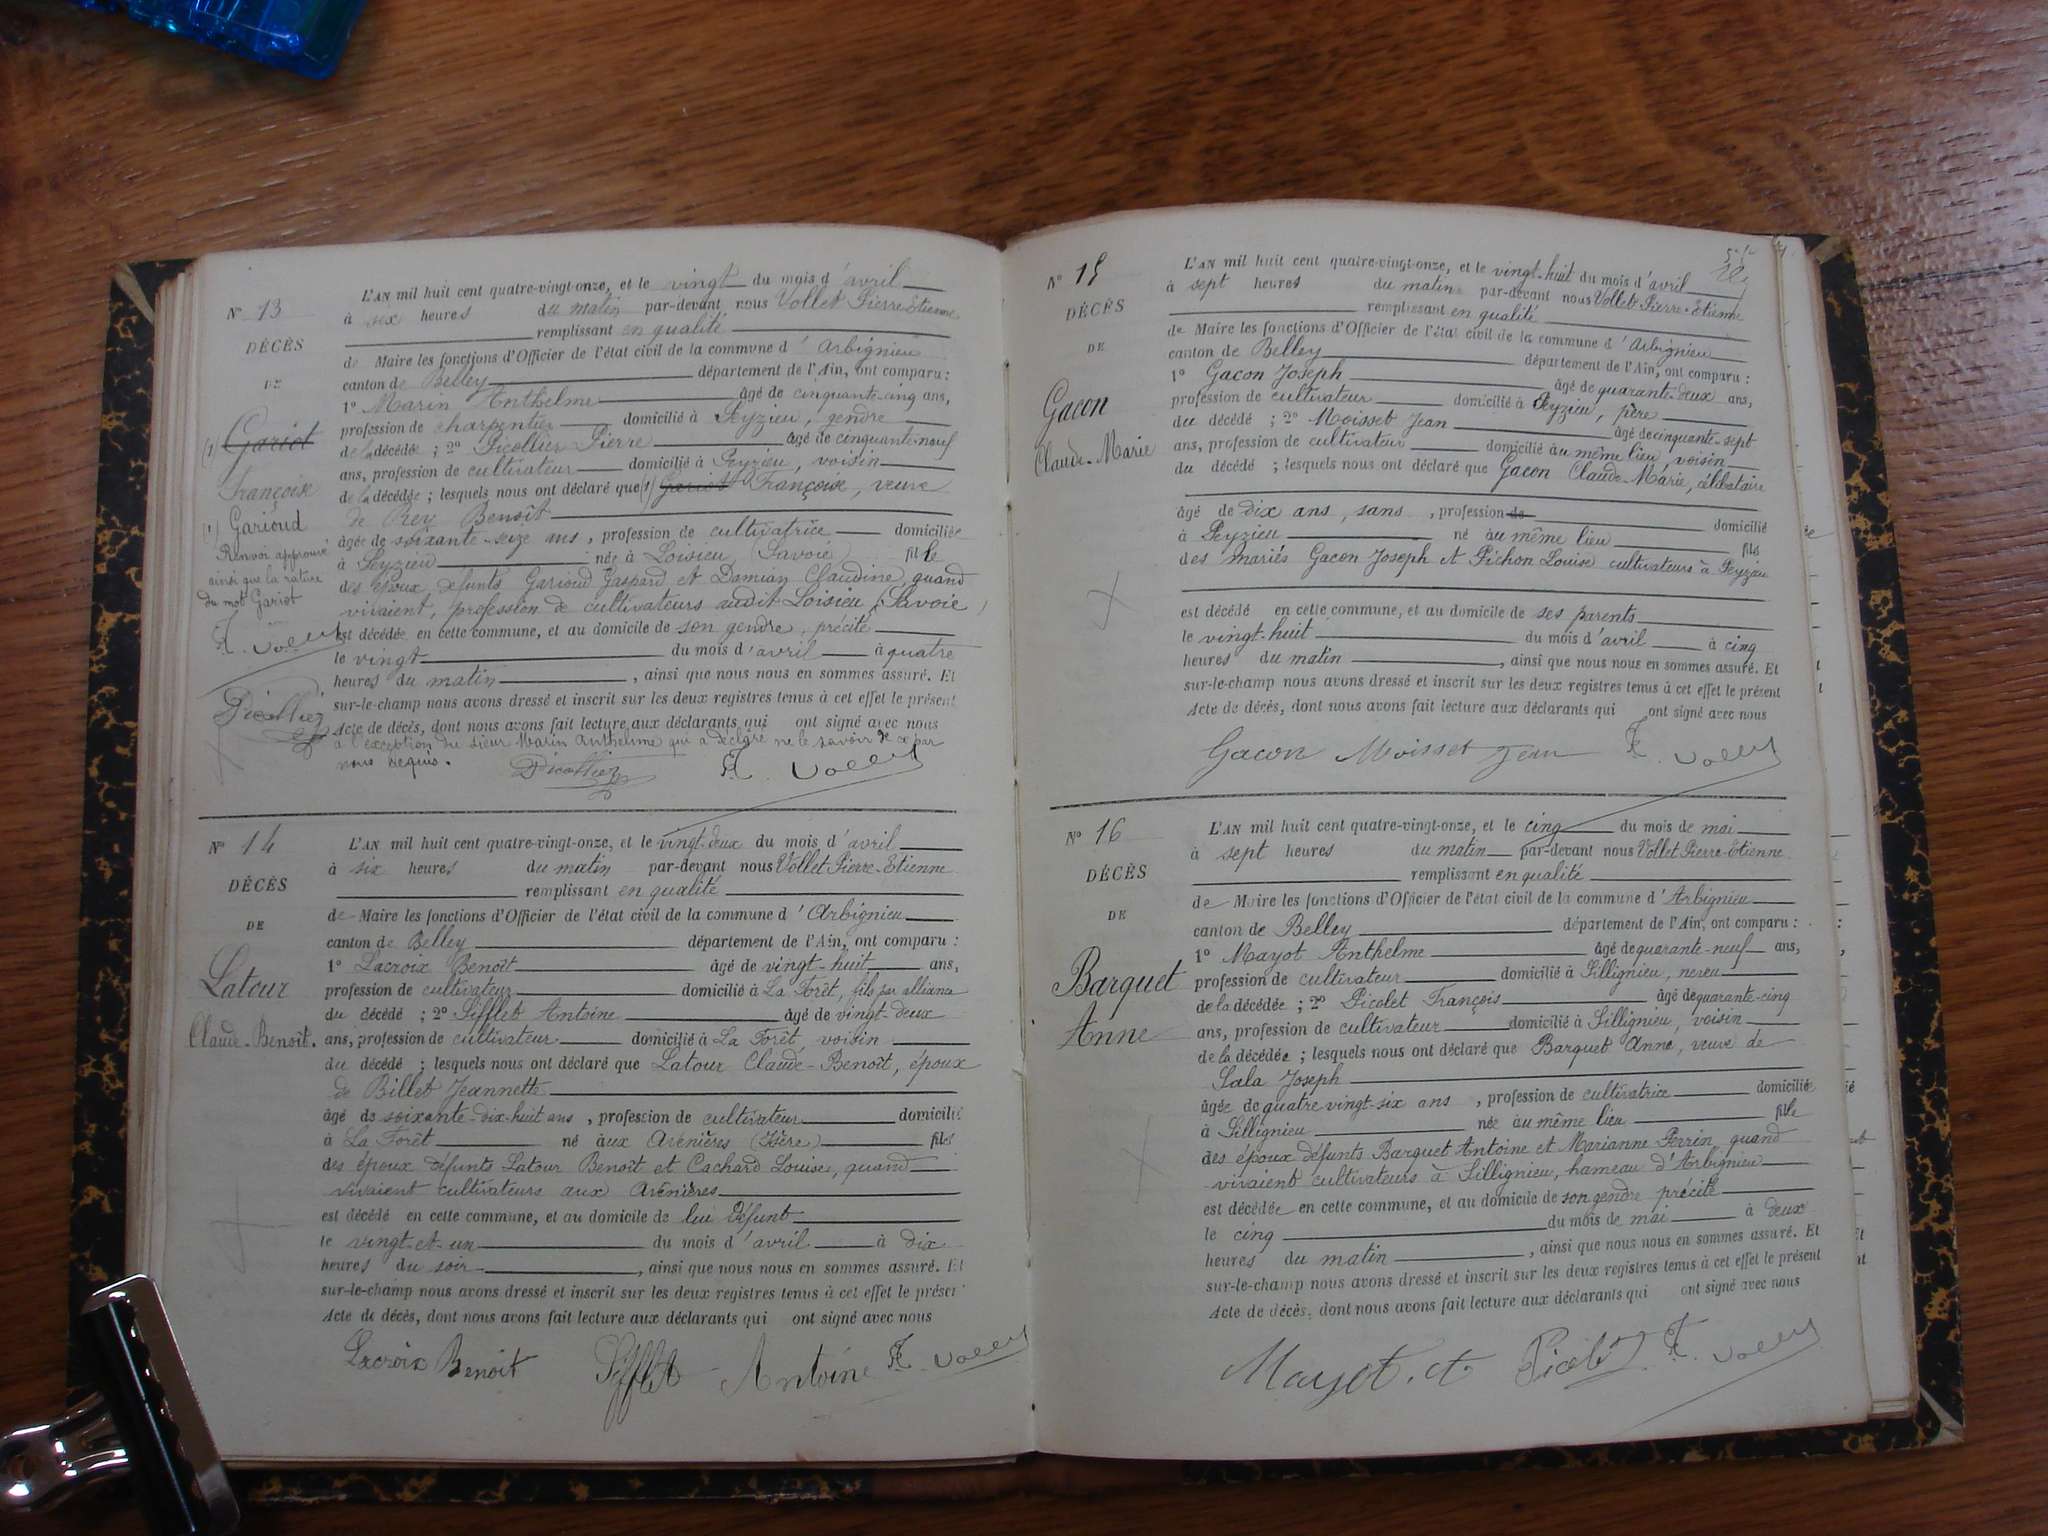 N° 13
DÉCÈS
DE
(1 Gariot
Françoise
(1) Garioud
Renvoi approuvé
ainsi que la rature
du mot Gariot
Picollier
L'AN mil huit cent quatre-vingt-onze, et le vingt du mois d'avril
à six heures du matin par-devant nous Vollet Pierre-Etienne
remplissant en qualité
de Maire les fonctions d'Officier de l'état civil de la commune d'Arbignieu
canton de Belley département de l'Ain, ont comparu :
1° Marin Anthelme âgé de cinquante-cinq ans,
profession de charpentier domicilié à Peyzieu, gendre
de la décédée ; 2° Picollier Pierre âgé de cinquante-neuf
ans, profession de cultivateur domicilié à Peyzieu, voisin
de la décédée ; lesquels nous ont déclaré que (1) Gariot Françoise, veuve
de Rey Benoît
âgée de soixante-seize ans, profession de cultivatrice domiciliée
à Peyzieu née à Loisieu (Savoie) fille
des époux défunts Garioud Gaspard et Damian Claudine, quand
vivaient, profession de cultivateurs audit Loisieu (Savoie)
est décédée en cette commune, et au domicile de son gendre, précité
le vingt du mois d'avril à quatre
heures du matin , ainsi que nous nous en sommes assuré. Et
sur-le-champ nous avons dressé et inscrit sur les deux registres tenus à cet effet le présent
Acte de décès, dont nous avons fait lecture aux déclarants qui ont signé avec nous
à l'exception du sieur Marin Anthelme qui a déclaré ne le savoir de ce par
nous requis.
Picollier Vollet
N° 14
DÉCÈS
DE
Latour
Claude-Benoît.
L'AN mil huit cent quatre-vingt-onze, et le vingt-deux du mois d'avril
à six heures du matin par-devant nous Vollet Pierre-Etienne
remplissant en qualité
de Maire les fonctions d'Officier de l'état civil de la commune d'Arbignieu
canton de Belley département de l'Ain, ont comparu :
1° Lacroix Benoît âgé de vingt-huit ans,
profession de cultivateur domicilié à La Forêt, fils par alliance
du décédé ; 2° Sifflet Antoine âgé de vingt-deux
ans, profession de cultivateur domicilié à La Forêt, voisin
du décédé ; lesquels nous ont déclaré que Latour Claude-Benoît, époux
de Billet Jeannette
âgé de soixante-dix-huit ans, profession de cultivateur domicilié
à La Forêt né aux Avenières (Isère) fils
des époux défunts Latour Benoît et Cachard Louise, quand
vivaient cultivateurs aux Avenières
est décédé en cette commune, et au domicile de lui défunt
le vingt-et-un du mois d'avril à dix
heures du soir , ainsi que nous nous en sommes assuré. Et
sur-le-champ nous avons dressé et inscrit sur les deux registres tenus à cet effet le présent
Acte de décès, dont nous avons fait lecture aux déclarants qui ont signé avec nous
Lacroix Benoit Sifflet Antoine Vollet
N° 15
DÉCÈS
DE
Gacon
Claude-Marie
L'AN mil huit cent quatre-vingt-onze, et le vingt-huit du mois d'avril
à sept heures du matin par-devant nous Vollet Pierre-Etienne
remplissant en qualité
de Maire les fonctions d'Officier de l'état civil de la commune d'Arbignieu
canton de Belley département de l'Ain, ont comparu :
1° Gacon Joseph âgé de quarante-deux ans,
profession de cultivateur domicilié à Peyzieu, père
du décédé ; 2° Moisset Jean âgé de cinquante-sept
ans, profession de cultivateur domicilié au même lieu, voisin
du décédé ; lesquels nous ont déclaré que Gacon Claude-Marie, célibataire
âgé de dix ans, sans , profession de domicilié
à Peyzieu né au même lieu fils
des mariés Gacon Joseph et Pichon Louise cultivateurs à Peyzieu
est décédé en cette commune, et au domicile de ses parents
le vingt-huit du mois d'avril à cinq
heures du matin , ainsi que nous nous en sommes assuré. Et
sur-le-champ nous avons dressé et inscrit sur les deux registres tenus à cet effet le présent
Acte de décès, dont nous avons fait lecture aux déclarants qui ont signé avec nous
Gacon Moisset Jean Vollet
N° 16
DÉCÈS
DE
Barquet
Anne
L'AN mil huit cent quatre-vingt-onze, et le cinq du mois de mai
à sept heures du matin par-devant nous Vollet Pierre-Etienne
remplissant en qualité
de Maire les fonctions d'Officier de l'état civil de la commune d'Arbignieu
canton de Belley département de l'Ain, ont comparu :
1° Mayot Anthelme âgé de quarante-neuf ans,
profession de cultivateur domicilié à Sillignieu, neveu
de la décédée ; 2° Picolet François âgé de quarante-cinq
ans, profession de cultivateur domicilié à Sillignieu, voisin
de la décédée ; lesquels nous ont déclaré que Barquet Anne, veuve de
Sala Joseph
âgée de quatre vingt-six ans , profession de cultivatrice domiciliée
à Sillignieu née au même lieu fille
des époux défunts Barquet Antoine et Marianne Perrin quand
vivaient cultivateurs à Sillignieu, hameau d'Arbignieu
est décédée en cette commune, et au domicile de son gendre précité
le cinq du mois de mai à deux
heures du matin , ainsi que nous nous en sommes assuré. Et
sur-le-champ nous avons dressé et inscrit sur les deux registres tenus à cet effet le présent
Acte de décès, dont nous avons fait lecture aux déclarants qui ont signé avec nous
Mayot. A Picolet Vollet